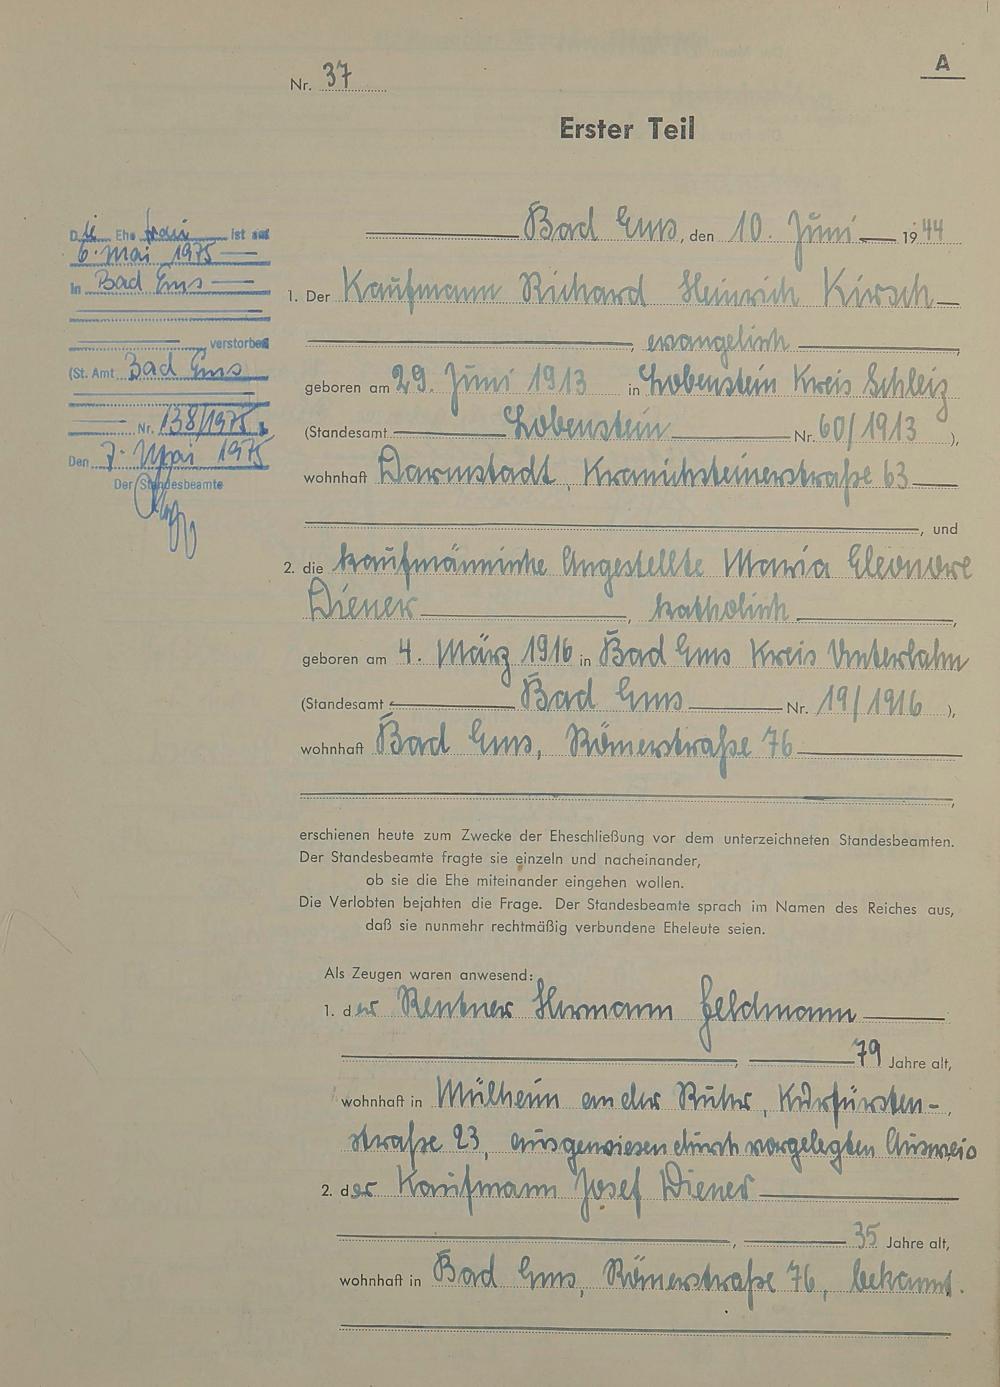 A
Nr. 37
Erster Teil
Bad Ems, den 10. Juni 1944
1. Der Kaufmann Richard Heinrich Kirsch
, evangelisch ,
geboren am 29. Juni 1913 in Lobenstein Kreis Schleiz
(Standesamt Lobenstein Nr. 60/1913 ),
wohnhaft Darmstadt, Kranichsteinerstraße 63
, und
2. die kaufmännische Angestellte Maria Eleonore
Diener , katholisch ,
geboren am 4. März 1916 in Bad Ems Kreis Unterlahn
(Standesamt Bad Ems Nr. 19/1916 ),
wohnhaft Bad Ems, Römerstraße 76
,
erschienen heute zum Zwecke der Eheschließung vor dem unterzeichneten Standesbeamten.
Der Standesbeamte fragte sie einzeln und nacheinander,
ob sie die Ehe miteinander eingehen wollen.
Die Verlobten bejahten die Frage. Der Standesbeamte sprach im Namen des Reiches aus,
daß sie nunmehr rechtmäßig verbundene Eheleute seien.
Als Zeugen waren anwesend:
1. der Rentner Hermann Feldmann
, 79 Jahre alt,
wohnhaft in Mülheim an der Ruhr, Kurfürsten-
straße 23, ausgewiesen durch vorgelegten Ausweis
2. der Kaufmann Josef Diener
, 35 Jahre alt,
wohnhaft in Bad Ems, Römerstraße 76, bekannt.
Die Ehefrau ist am
6. Mai 1975
in Bad Ems
verstorben
(St. Amt Bad Ems
Nr. 138/1975 ).
Den 7. Mai 1975
Der Standesbeamte